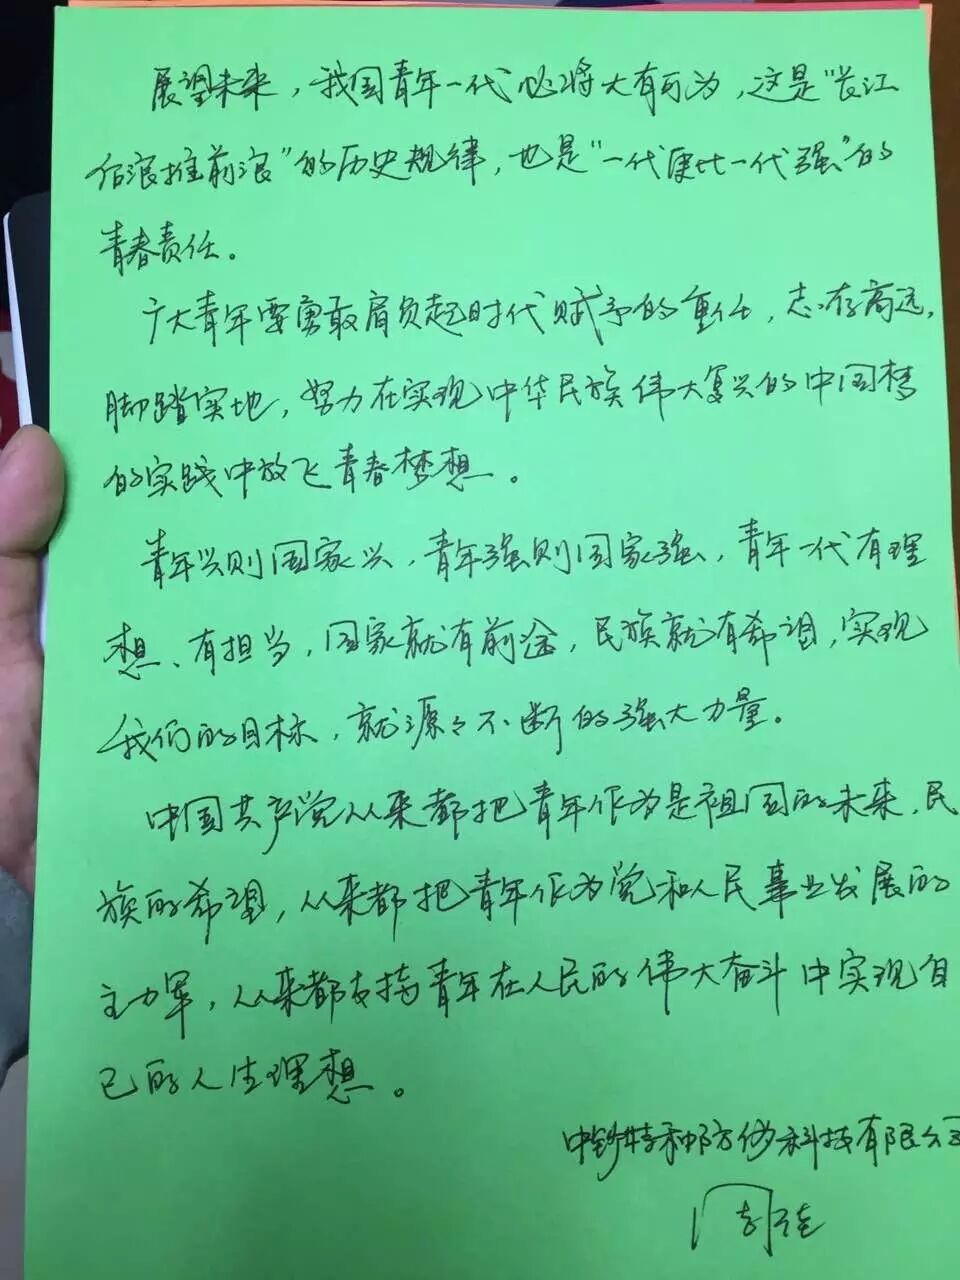 展望未来，我国青年一代必将大有可为，这是“长江
后浪推前浪”的历史规律，也是“一代更比一代强”的
青春责任。
广大青年要勇敢肩负起时代赋予的重任，志存高远，
脚踏实地，努力在实现中华民族伟大复兴的中国梦
的实践中放飞青春梦想。
青年兴则国家兴，青年强则国家强，青年一代有理
想、有担当，国家就有前途，民族就有希望，实现
我们的目标，就源々不断的强大力量。
中国共产党从来都把青年作为是祖国的未来、民
族的希望，从来都把青年作为党和人民事业发展的
主力军，从来都支持青年在人民的伟大奋斗中实现自
己的人生理想。
特种防伪科技有限公司